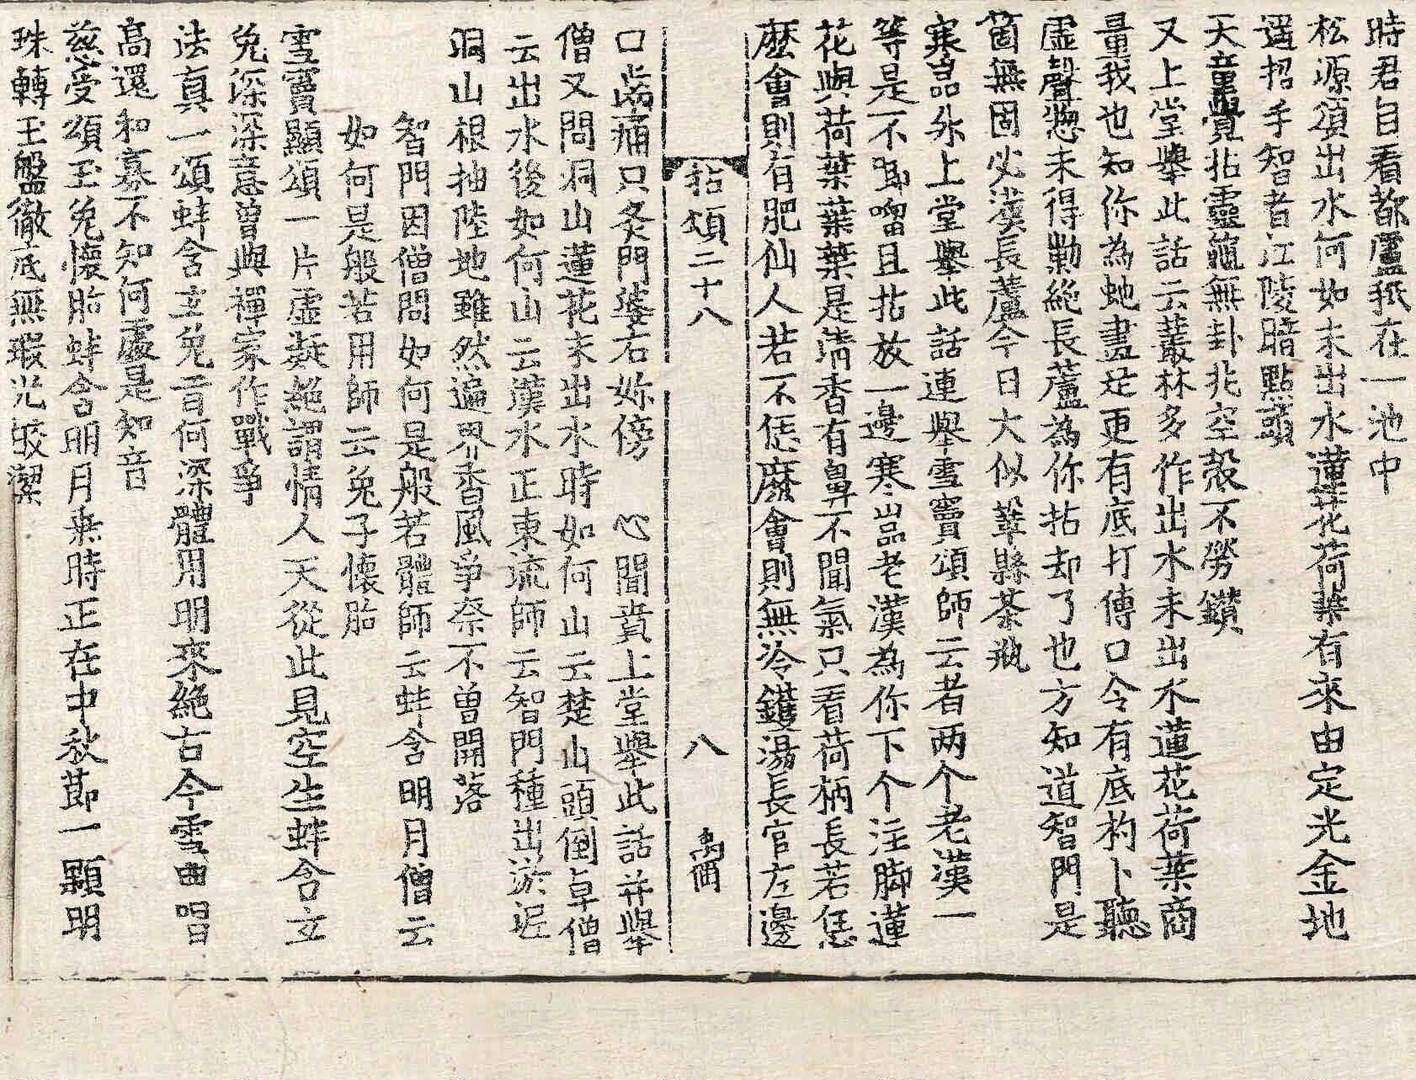 時君自看都盧秪在一池中
松源頌出水何如未出水蓮花荷葉有來由定光金地
遥招手智者江陵暗點頭
天童覺拈靈龜無卦兆空殼不勞鑽
又上堂舉此話云叢林多作出水未出水蓮花荷葉商
量我也知你為虵畫足更有底打傳口令有底杓卜聽
虛聲惣未得勦絕長蘆為你拈却了也方知道智門是
箇無固必漢長蘆今日大似䔖縣茶瓶
寒嵓外上堂舉此話連舉雪竇頌師云者两个老漢一
等是不唧㗰且拈放一邊寒嵓老漢為你下个注脚蓮
花與荷葉葉葉是清香有鼻不聞氣只看荷柄長若恁
麽會則有肥仙人若不恁麽會則無冷鑊湯長官左邊
拈頌二十八 八
口齒痛只灸門婆右妳傍 心聞賁上堂舉此話并舉
僧又問洞山蓮花未出水時如何山云楚山頭倒卓僧
云出水後如何山云漢水正東流師云智門種出淤泥
洞山根抽陸地雖然遍界香風爭奈不曾開落
智門因僧問如何是般若體師云蚌含明月僧云
如何是般若用師云兔子懷胎
雪竇顯頌一片虛凝絕謂情人天從此見空生蚌含玄
兔深深意曾與禪家作戰爭
法真一頌蚌含玄兔旨何深體用明來絕古今雪曲唱
高還和寡不知何處是知音
慈受頌玉兔懷胎蚌含明月乘時正在中秋節一顆明
珠轉玉盤徹底無瑕光皎潔